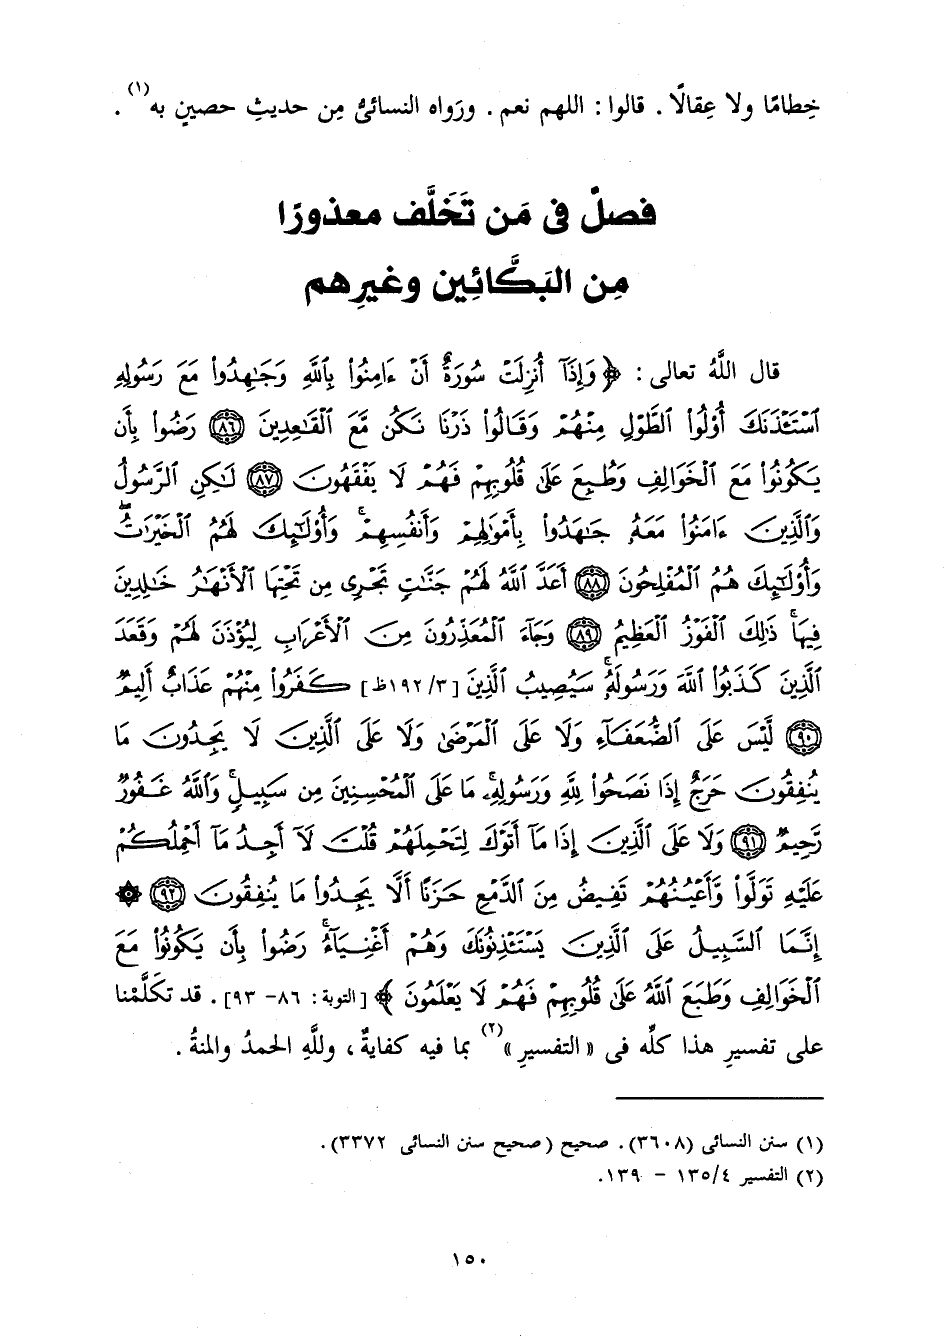 خِطامًا ولا عِقالًا . قالوا : اللهم نعم . ورَواه النسائىُّ مِن حديثِ حصينٍ به(١) .
فصلٌ فى مَن تَخَلَّف معذورًا
مِن البَكَّائِين وغيرِهم
قال اللَّهُ تعالى : ﴿ وَإِذَآ أُنزِلَتْ سُورَةٌ أَنْ ءَامِنُوا۟ بِٱللَّهِ وَجَٰهِدُوا۟ مَعَ رَسُولِهِ
ٱسْتَـْٔذَنَكَ أُو۟لُوا۟ ٱلطَّوْلِ مِنْهُمْ وَقَالُوا۟ ذَرْنَا نَكُن مَّعَ ٱلْقَٰعِدِينَ ﴿٨٦﴾ رَضُوا۟ بِأَن
يَكُونُوا۟ مَعَ ٱلْخَوَالِفِ وَطُبِعَ عَلَىٰ قُلُوبِهِمْ فَهُمْ لَا يَفْقَهُونَ ﴿٨٧﴾ لَٰكِنِ ٱلرَّسُولُ
وَٱلَّذِينَ ءَامَنُوا۟ مَعَهُۥ جَٰهَدُوا۟ بِأَمْوَٰلِهِمْ وَأَنفُسِهِمْ ۚ وَأُو۟لَٰٓئِكَ لَهُمُ ٱلْخَيْرَٰتُ ۖ
وَأُو۟لَٰٓئِكَ هُمُ ٱلْمُفْلِحُونَ ﴿٨٨﴾ أَعَدَّ ٱللَّهُ لَهُمْ جَنَّٰتٍ تَجْرِى مِن تَحْتِهَا ٱلْأَنْهَٰرُ خَٰلِدِينَ
فِيهَا ۚ ذَٰلِكَ ٱلْفَوْزُ ٱلْعَظِيمُ ﴿٨٩﴾ وَجَآءَ ٱلْمُعَذِّرُونَ مِنَ ٱلْأَعْرَابِ لِيُؤْذَنَ لَهُمْ وَقَعَدَ
ٱلَّذِينَ كَذَبُوا۟ ٱللَّهَ وَرَسُولَهُۥ ۚ سَيُصِيبُ ٱلَّذِينَ [٣/ ١٩٢ظ] كَفَرُوا۟ مِنْهُمْ عَذَابٌ أَلِيمٌ
﴿٩٠﴾ لَّيْسَ عَلَى ٱلضُّعَفَآءِ وَلَا عَلَى ٱلْمَرْضَىٰ وَلَا عَلَى ٱلَّذِينَ لَا يَجِدُونَ مَا
يُنفِقُونَ حَرَجٌ إِذَا نَصَحُوا۟ لِلَّهِ وَرَسُولِهِۦ ۚ مَا عَلَى ٱلْمُحْسِنِينَ مِن سَبِيلٍ ۚ وَٱللَّهُ غَفُورٌ
رَّحِيمٌ ﴿٩١﴾ وَلَا عَلَى ٱلَّذِينَ إِذَا مَآ أَتَوْكَ لِتَحْمِلَهُمْ قُلْتَ لَآ أَجِدُ مَآ أَحْمِلُكُمْ
عَلَيْهِ تَوَلَّوا۟ وَّأَعْيُنُهُمْ تَفِيضُ مِنَ ٱلدَّمْعِ حَزَنًا أَلَّا يَجِدُوا۟ مَا يُنفِقُونَ ﴿٩٢﴾ ۞
إِنَّمَا ٱلسَّبِيلُ عَلَى ٱلَّذِينَ يَسْتَـْٔذِنُونَكَ وَهُمْ أَغْنِيَآءُ ۚ رَضُوا۟ بِأَن يَكُونُوا۟ مَعَ
ٱلْخَوَالِفِ وَطَبَعَ ٱللَّهُ عَلَىٰ قُلُوبِهِمْ فَهُمْ لَا يَعْلَمُونَ ﴾ [ التوبة : ٨٦- ٩٣] . قد تكَلَّمْنا
على تفسيرِ هذا كلِّه فى « التفسيرِ »(٢) بما فيه كفايةٌ ، وللَّهِ الحمدُ والمنةُ .
(١) سنن النسائى (٣٦٠٨). صحيح (صحيح سنن النسائى ٣٣٧٢).
(٢) التفسير ٤/ ١٣٥ – ١٣٩.
١٥٠